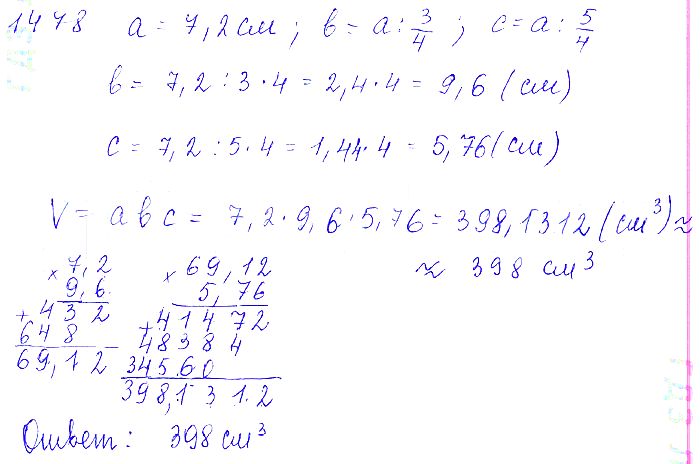 1478 a = 7,2 см ; в = а : 3/4 ; с = а : 5/4
в = 7,2 : 3 · 4 = 2,4 · 4 = 9,6 (см)
с = 7,2 : 5 · 4 = 1,44 · 4 = 5,76 (см)
V = а в с = 7,2 · 9,6 · 5,76 = 398,1312 (см³) ≈
≈ 398 см³
× 7,2
9,6
+ 4 3 2
6 4 8
69,12
× 69,12
5,76
+ 4 1 4 7 2
4 8 3 8 4
3 4 5 6 0
398,1312
Ответ: 398 см³